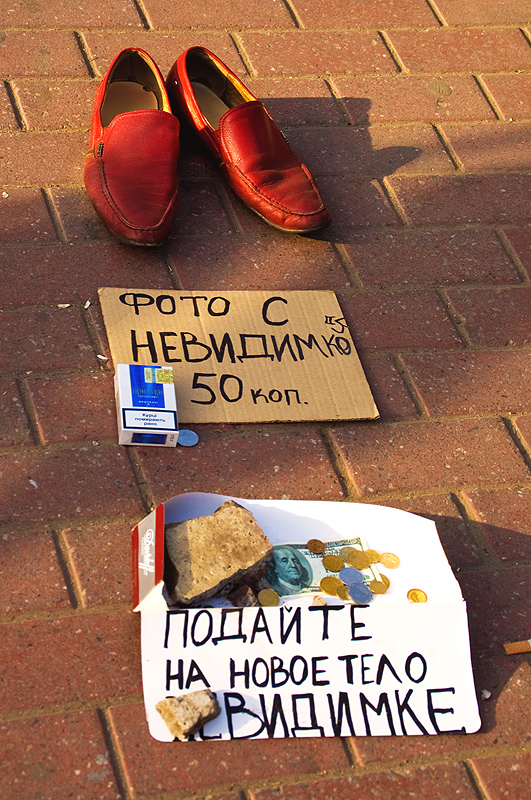 ФОТО С
НЕВИДИМКОЙ
50 КОП.
Курці
помирають
рано
ПОДАЙТЕ
НА НОВОЕ ТЕЛО
НЕВИДИМКЕ